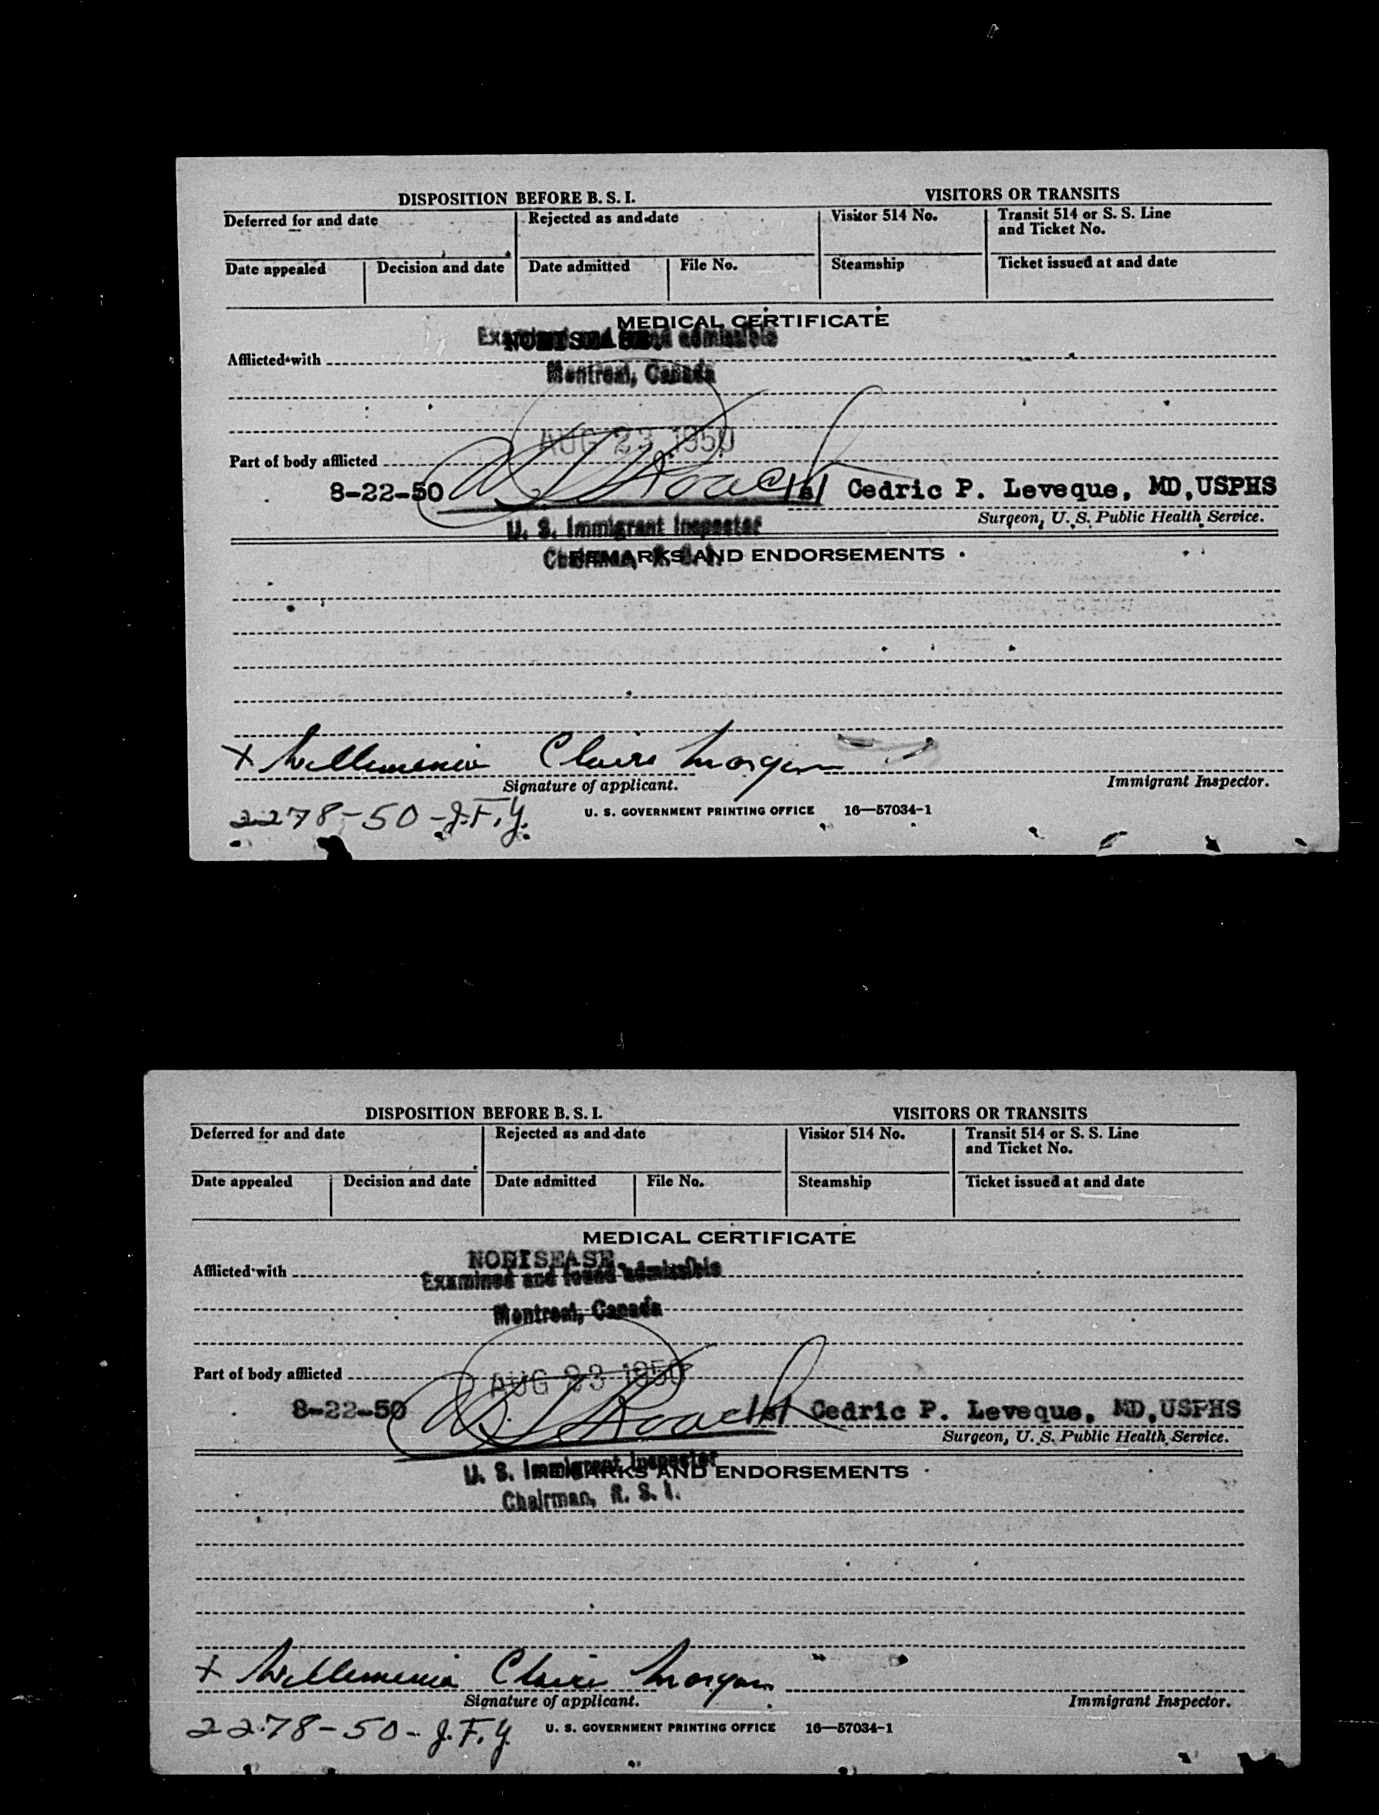 DISPOSITION BEFORE B. S. I.
VISITORS OR TRANSITS
Deferred for and date
Rejected as and date
Visitor 514 No.
Transit 514 or S. S. Line
and Ticket No.
Date appealed
Decision and date
Date admitted
File No.
Steamship
Ticket issued at and date
MEDICAL CERTIFICATE
Examined and found admissible
Afflicted with
Montreal, Canada
AUG 23 1950
Part of body afflicted
8-22-50
|s| Cedric P. Leveque, MD,USPHS
Surgeon, U. S. Public Health Service.
U. S. Immigrant Inspector
REMARKS AND ENDORSEMENTS
Chairman,
+ Claire Morgan
Signature of applicant.
Immigrant Inspector.
2278-50-J.F.Y.
U. S. GOVERNMENT PRINTING OFFICE 16—57034-1
DISPOSITION BEFORE B. S. I.
VISITORS OR TRANSITS
Deferred for and date
Rejected as and date
Visitor 514 No.
Transit 514 or S. S. Line
and Ticket No.
Date appealed
Decision and date
Date admitted
File No.
Steamship
Ticket issued at and date
MEDICAL CERTIFICATE
Afflicted with
Examined and found admissible
Montreal, Canada
Part of body afflicted
AUG 23 1950
8-22-50
|s| Cedric P. Leveque, MD,USPHS
Surgeon, U. S. Public Health Service.
U. S. Immigrant Inspector
REMARKS AND ENDORSEMENTS
Chairman,
+ Claire Morgan
Signature of applicant.
Immigrant Inspector.
2278-50-J.F.Y.
U. S. GOVERNMENT PRINTING OFFICE 16—57034-1